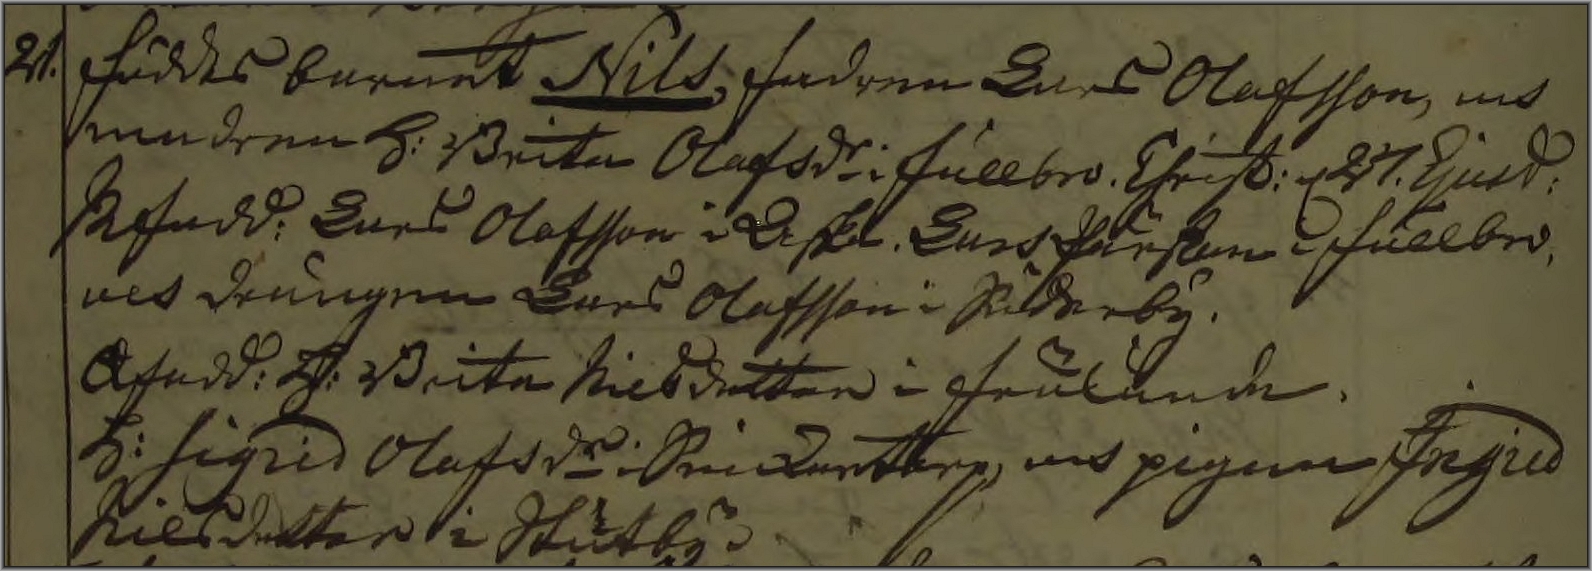 21. föddes barnet Nils, fadren Lars Olafsson, och
modren H: Brita Olafsdr i Fullbro. Christ: d 27. Ejusd:
Mfadd: Lars Olafsson i Lars i Fullbro,
och drängen Lars Olafsson i Söderby.
Qfadd: H: Brita Nilsdotter i Frölunda.
H: Sigrid Olafsdr i och pigan Ingrid
Nilsdotter i